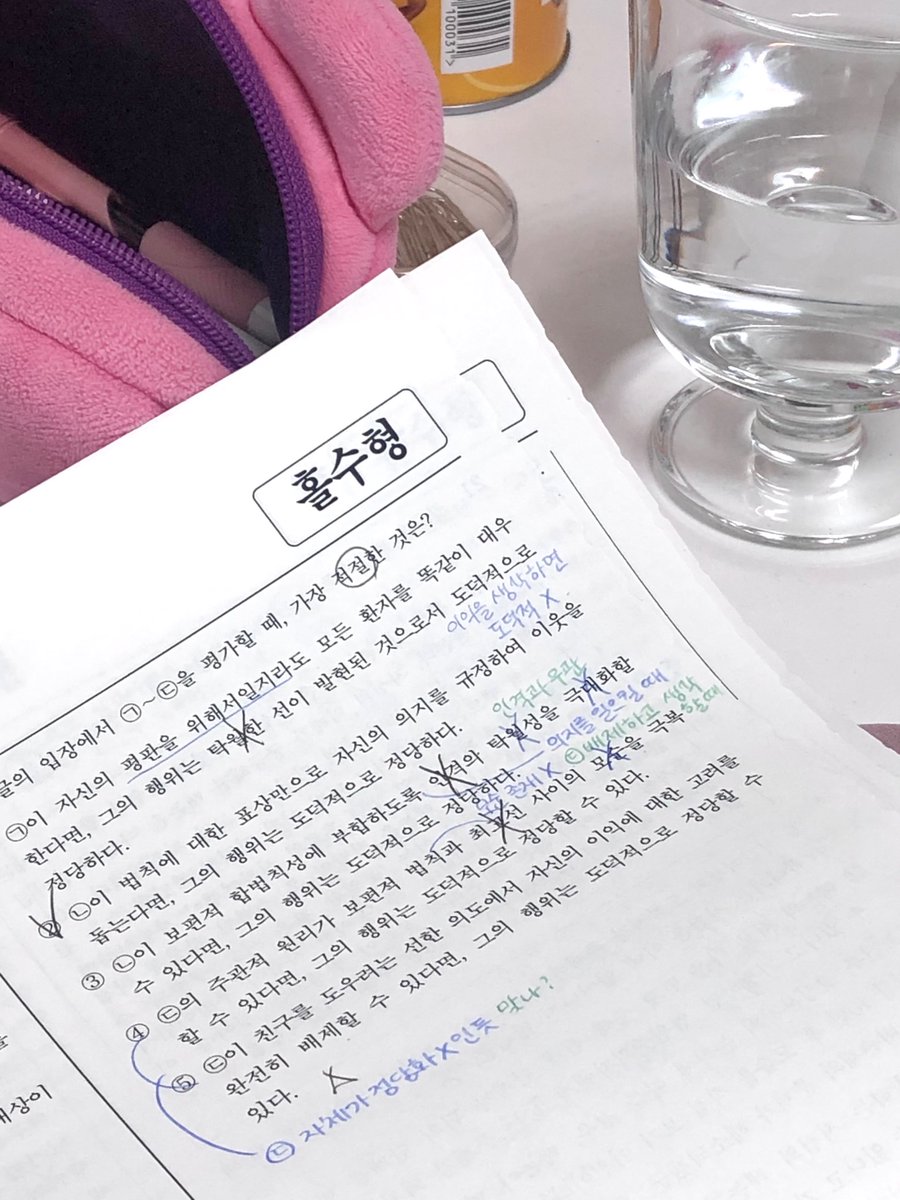 700031>
홀수형
글의 입장에서 ㉠~㉢을 평가할 때, 가장 적절한 것은?
㉠이 자신의 평판을 위해서일지라도 모든 환자를 똑같이 대우
한다면, 그의 행위는 탁월한 선이 발현된 것으로서 도덕적으로
정당하다.
이익을 생각하면
도덕적 X
② ㉡이 법칙에 대한 표상만으로 자신의 의지를 규정하여 이웃을
돕는다면, 그의 행위는 도덕적으로 정당하다.
인격과 무관
③ ㉡이 보편적 합법칙성에 부합하도록 인격의 탁월성을 극대화할
수 있다면, 그의 행위는 도덕적으로 정당하다.
의지를 일으킬 때
㉢ 배제하고 생각
할 때
모순 존재 X
④ ㉢의 주관적 원리가 보편적 법칙과 최고선 사이의 모순을 극복
할 수 있다면, 그의 행위는 도덕적으로 정당할 수 있다.
⑤ ㉢이 친구를 도우려는 선한 의도에서 자신의 이익에 대한 고려를
완전히 배제할 수 있다면, 그의 행위는 도덕적으로 정당할 수
있다.
㉢ 자체가 정당화 X인듯 맞나?
를
대상이